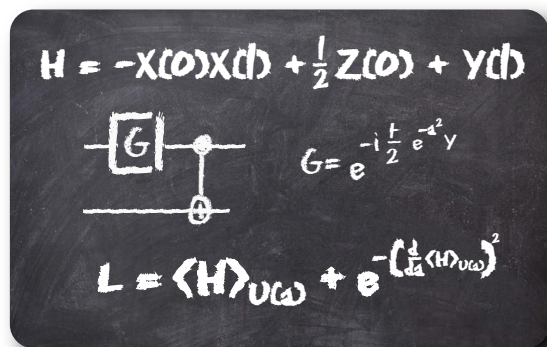 H = -X(0)X(1) + 1/2 Z(0) + Y(1)
G
G = e^{-i \frac{1}{2} e^{-a^2} Y}
L = ⟨H⟩_{U(a)} + e^{-(\frac{d}{da}⟨H⟩_{U(a)})^2}